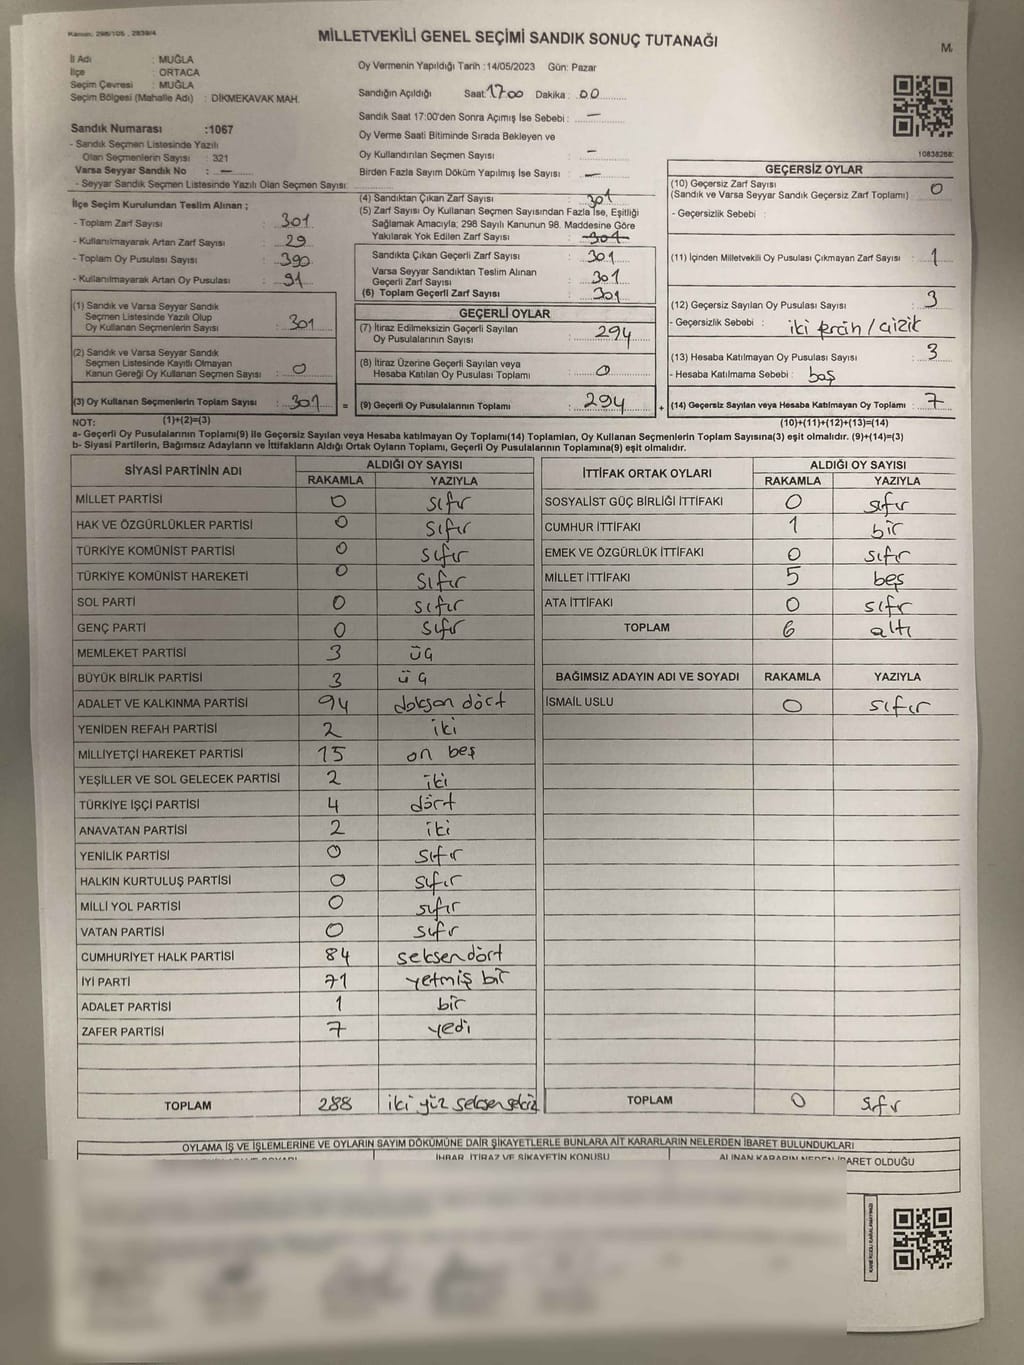 Kanun: 298/105 , 2839/4
MİLLETVEKİLİ GENEL SEÇİMİ SANDIK SONUÇ TUTANAĞI
M.
İl Adı : MUĞLA
İlçe : ORTACA
Seçim Çevresi : MUĞLA
Seçim Bölgesi (Mahalle Adı) : DİKMEKAVAK MAH.
Oy Vermenin Yapıldığı Tarih :14/05/2023 Gün: Pazar
Sandığın Açıldığı Saat: 17 00 Dakika : 00
Sandık Saat 17:00'den Sonra Açımış İse Sebebi : —
Oy Verme Saati Bitiminde Sırada Bekleyen ve
Oy Kullandırılan Seçmen Sayısı : —
Birden Fazla Sayım Döküm Yapılmış İse Sayısı : —
Sandık Numarası :1067
- Sandık Seçmen Listesinde Yazılı
Olan Seçmenlerin Sayısı : 321
Varsa Seyyar Sandık No : —
- Seyyar Sandık Seçmen Listesinde Yazılı Olan Seçmen Sayısı:
10838268
İlçe Seçim Kurulundan Teslim Alınan ;
- Toplam Zarf Sayısı : 301
- Kullanılmayarak Artan Zarf Sayısı : 29
- Toplam Oy Pusulası Sayısı : 390
- Kullanılmayarak Artan Oy Pusulası : 91
(1) Sandık ve Varsa Seyyar Sandık
Seçmen Listesinde Yazılı Olup
Oy Kullanan Seçmenlerin Sayısı : 301
(2) Sandık ve Varsa Seyyar Sandık
Seçmen Listesinde Kayıtlı Olmayan
Kanun Gereği Oy Kullanan Seçmen Sayısı : 0
(3) Oy Kullanan Seçmenlerin Toplam Sayısı : 301 =
(4) Sandıktan Çıkan Zarf Sayısı : 301
(5) Zarf Sayısı Oy Kullanan Seçmen Sayısından Fazla İse, Eşitliği
Sağlamak Amacıyla; 298 Sayılı Kanunun 98. Maddesine Göre
Yakılarak Yok Edilen Zarf Sayısı : 301
Sandıkta Çıkan Geçerli Zarf Sayısı : 301
Varsa Seyyar Sandıktan Teslim Alınan
Geçerli Zarf Sayısı : 301
(6) Toplam Geçerli Zarf Sayısı : 301
GEÇERLİ OYLAR
(7) İtiraz Edilmeksizin Geçerli Sayılan
Oy Pusulalarının Sayısı : 294
(8) İtiraz Üzerine Geçerli Sayılan veya
Hesaba Katılan Oy Pusulası Toplamı : 0
(9) Geçerli Oy Pusulalarının Toplamı : 294 +
GEÇERSİZ OYLAR
(10) Geçersiz Zarf Sayısı : 0
(Sandık ve Varsa Seyyar Sandık Geçersiz Zarf Toplamı)
- Geçersizlik Sebebi :
(11) İçinden Milletvekili Oy Pusulası Çıkmayan Zarf Sayısı : 1
(12) Geçersiz Sayılan Oy Pusulası Sayısı : 3
- Geçersizlik Sebebi : iki tercih / çizik
(13) Hesaba Katılmayan Oy Pusulası Sayısı : 3
- Hesaba Katılmama Sebebi : boş
(14) Geçersiz Sayılan veya Hesaba Katılmayan Oy Toplamı : 7
NOT: (1)+(2)=(3) (10)+(11)+(12)+(13)=(14)
a- Geçerli Oy Pusulalarının Toplamı(9) İle Geçersiz Sayılan veya Hesaba katılmayan Oy Toplamı(14) Toplamları, Oy Kullanan Seçmenlerin Toplam Sayısına(3) eşit olmalıdır. (9)+(14)=(3)
b- Siyasi Partilerin, Bağımsız Adayların ve İttifakların Aldığı Ortak Oyların Toplamı, Geçerli Oy Pusulalarının Toplamına(9) eşit olmalıdır.
SİYASİ PARTİNİN ADI ALDIĞI OY SAYISI
RAKAMLA YAZIYLA
MİLLET PARTİSİ 0 sıfır
HAK VE ÖZGÜRLÜKLER PARTİSİ 0 sıfır
TÜRKİYE KOMÜNİST PARTİSİ 0 sıfır
TÜRKİYE KOMÜNİST HAREKETİ 0 sıfır
SOL PARTİ 0 sıfır
GENÇ PARTİ 0 sıfır
MEMLEKET PARTİSİ 3 üç
BÜYÜK BİRLİK PARTİSİ 3 üç
ADALET VE KALKINMA PARTİSİ 94 doksan dört
YENİDEN REFAH PARTİSİ 2 iki
MİLLİYETÇİ HAREKET PARTİSİ 15 on beş
YEŞİLLER VE SOL GELECEK PARTİSİ 2 iki
TÜRKİYE İŞÇİ PARTİSİ 4 dört
ANAVATAN PARTİSİ 2 iki
YENİLİK PARTİSİ 0 sıfır
HALKIN KURTULUŞ PARTİSİ 0 sıfır
MİLLİ YOL PARTİSİ 0 sıfır
VATAN PARTİSİ 0 sıfır
CUMHURİYET HALK PARTİSİ 84 seksen dört
İYİ PARTİ 71 yetmiş bir
ADALET PARTİSİ 1 bir
ZAFER PARTİSİ 7 yedi
TOPLAM 288 iki yüz seksen sekiz
İTTİFAK ORTAK OYLARI ALDIĞI OY SAYISI
RAKAMLA YAZIYLA
SOSYALİST GÜÇ BİRLİĞİ İTTİFAKI 0 sıfır
CUMHUR İTTİFAKI 1 bir
EMEK VE ÖZGÜRLÜK İTTİFAKI 0 sıfır
MİLLET İTTİFAKI 5 beş
ATA İTTİFAKI 0 sıfır
TOPLAM 6 altı
BAĞIMSIZ ADAYIN ADI VE SOYADI RAKAMLA YAZIYLA
İSMAİL USLU 0 sıfır
TOPLAM 0 sıfır
OYLAMA İŞ VE İŞLEMLERİNE VE OYLARIN SAYIM DÖKÜMÜNE DAİR ŞİKAYETLERLE BUNLARA AİT KARARLARIN NELERDEN İBARET BULUNDUKLARI
İHBAR, İTİRAZ VE ŞİKAYETİN KONUSU
ALINAN KARARIN NEDEN İBARET OLDUĞU